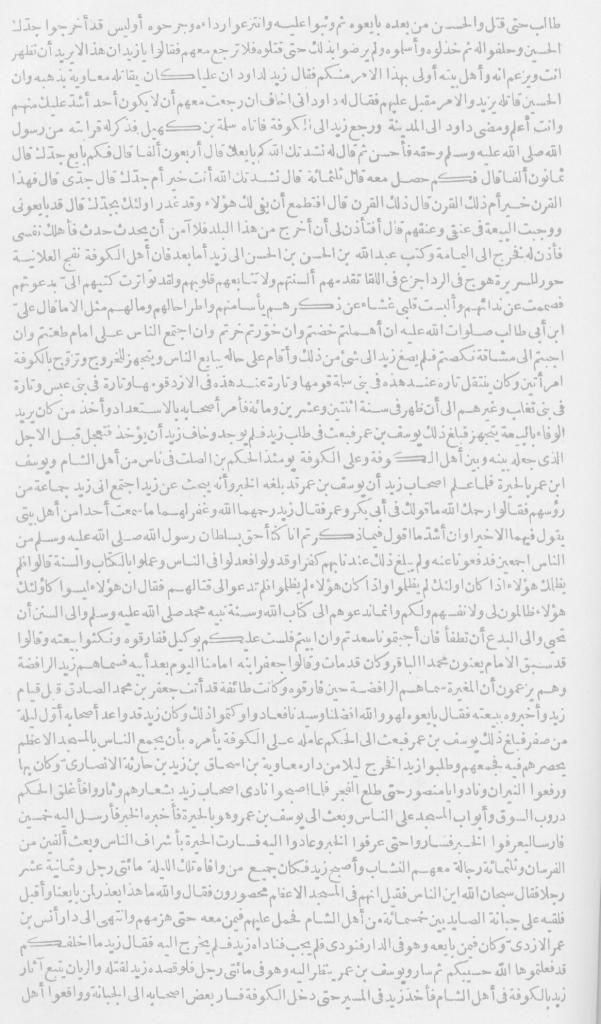 طالب حتى قتل والحسن من بعده بايعوه ثم وثبوا عليه وانتزعوا رداءه وجرحوه أوليس قد أخرجوا جدّك
الحسين وحلفوا له ثم خذلوه وأسلموه ولم يرضوا بذلك حتى قتلوه فلا ترجع معهم فقالوا يا زيد ان هذا لا يريد أن تظهر
انت ويزعم انه وأهل بيته أولى بهذا الامر منكم فقال زيد لداود ان عليا كان يقاتله معاوية بذهبه وان
الحسين قاتله يزيد والامر مقبل عليهم فقال له داود انى اخاف ان رجعت معهم أن لا يكون أحد أشد عليك منهم
وانت أعلم ومضى داود الى المدينة ورجع زيد الى الكوفة فاتاه سلمة بن كهيل فذكر له قرابته من رسول
الله صلى الله عليه وسلم وحقه فأحسن ثم قال له نشدتك الله كم بايعك قال أربعون ألفا قال فكم بايع جدّك قال
ثمانون ألفا قال فكم حصل معه قال ثلثمائة قال نشدتك الله أنت خير أم جدّك قال جدّى قال فهذا
القرن خير أم ذلك القرن قال ذلك القرن قال افتطمع أن يفى لك هؤلاء وقد غدر اولئك بجدّك قال قد بايعونى
ووجبت البيعة فى عنقى وعنقهم قال أفتأذن لى أن أخرج من هذا البلد فلا آمن أن يحدث حدث فأهلك نفسى
فأذن له فخرج الى اليمامة وكتب عبد الله بن الحسن بن الحسن الى زيد أما بعد فان أهل الكوفة نفج العلانية
حور للسريرة هوج فى الرد اجزع فى اللقا تقدمهم ألسنتهم ولا تتابعهم قلوبهم ولقد تواترت كتبهم الىّ بدعوتهم
فصممت عن ندائهم وألبست قلبى غشاء عن ذكرهم يأسا منهم واطراحا لهم وما لهم مثل الا ما قال علىّ
ابن أبى طالب صلوات الله عليه ان أهملتم خضتم وان خوّرتم خرتم وان اجتمع الناس على امام طعنتم وان
اجبتم الى مشاقة نكصتم فلم يصغ زيد الى شئ من ذلك وأقام على حاله يبايع الناس ويتجهز للخروج وتزوج بالكوفة
امرأتين وكان ينتقل تارة عند هذه فى بنى سلمة قومها وتارة عند هذه فى الازد قومها وتارة فى بنى عبس وتارة
فى بنى تغلب وغيرهم الى أن ظهر فى سنة اثنتين وعشرين ومائة فأمر أصحابه بالاستعداد وأخذ من كان يريد
الوفاء بالبيعة يتجهز فبلغ ذلك يوسف بن عمر فبعث فى طلب زيد فلم يوجد وخاف زيد أن يؤخذ فتعجل قبل الاجل
الذى جعله بينه وبين أهل الكوفة وعلى الكوفة يومئذ الحكم بن الصلت فى ناس من أهل الشام ويوسف
ابن عمر بالحيرة فلما علم اصحاب زيد أن يوسف بن عمر قد بلغه الخبر وأنه يبحث عن زيد اجتمع الى زيد جماعة من
رؤسهم فقالوا رحمك الله ما قولك فى أبى بكر وعمر فقال زيد رحمهما الله وغفر لهما ما سمعت أحدا من أهل بيتى
يقول فيهما الا خيرا وان أشدّ ما اقول فيما ذكرتم انا كنا أحق بسلطان رسول الله صلى الله عليه وسلم من
الناس اجمعين فدفعونا عنه ولم يبلغ ذلك عندنا بهم كفرا وقد ولوا فعدلوا فى الناس وعملوا بالكتاب والسنة قالوا فلم
يظلمك هؤلاء اذا كان اولئك لم يظلموا واذا كان هؤلاء لم يظلموا فلم تدعو الى قتالهم فقال ان هؤلاء ليسوا كاولئك
هؤلاء ظالمون لى ولانفسهم ولكم وانما ندعوهم الى كتاب الله وسنة نبيه محمد صلى الله عليه وسلم والى السنن أن
تحيى والى البدع أن تطفأ فان أجبتمونا سعدتم وان ابيتم فلست عليكم بوكيل ففارقوه ونكثوا بيعته وقالوا
قد سبق الامام يعنون محمدا الباقر وكان قد مات وقالوا جعفر ابنه امامنا اليوم بعد أبيه فسماهم زيد الرافضة
وهم يزعمون أن المغيرة سماهم الرافضة حين فارقوه وكانت طائفة قد أتت جعفر بن محمد الصادق قبل قيام
زيد وأخبروه ببيعته فقال بايعوه لهو والله افضلنا وسيدنا فعادوا وكتموا ذلك وكان زيد قد واعد أصحابه أوّل ليلة
من صفر فبلغ ذلك يوسف بن عمر فبعث الى الحكم عامله على الكوفة يأمره بأن يجمع الناس بالمسجد الاعظم
يحصرهم فيه فجمعهم وطلبوا زيدا فخرج ليلا من دار معاوية بن اسحاق بن زيد بن حارثة الانصارى وكان بها
ورفعوا النيران ونادوا يا منصور حتى طلع الفجر فلما اصبحوا نادى اصحاب زيد بشعارهم وثاروا فأغلق الحكم
دروب السوق وأبواب المسجد على الناس وبعث الى يوسف بن عمر وهو بالحيرة فأخبره الخبر فأرسل اليه خمسين
فارسا ليعرفوا الخبر فساروا حتى عرفوا الخبر وعادوا اليه فسارت الحيرة بأشراف الناس وبعث ألفين من
الفرسان وثلثمائة رجالة معهم النشاب وأصبح زيد فكان جميع من وافاه تلك الليلة مائتى رجل وثمانية عشر
رجلا فقال سبحان الله اين الناس فقيل انهم فى المسجد الاعظم محصورون فقال والله ما هذا بعذر لمن بايعنا وأقبل
فلقيه على جبانة الصايديين خمسمائة من أهل الشام فحمل عليهم فيمن معه حتى هزمهم وانتهى الى دار أنس بن
عمر الازدى وكان فيمن بايعه وهو فى الدار فنودى فلم يجب فناداه زيد فلم يخرج اليه فقال زيد ما اخلفكم
قد فعلتموها الله حسيبكم ثم سار ويوسف بن عمر ينظر اليه وهو فى مائتى رجل فلو قصده زيد لقتله والريان يتبع آثار
زيد بالكوفة فى أهل الشام فأخذ زيد فى المسير حتى دخل الكوفة فسار بعض اصحابه الى الجبانة وواقعوا أهل